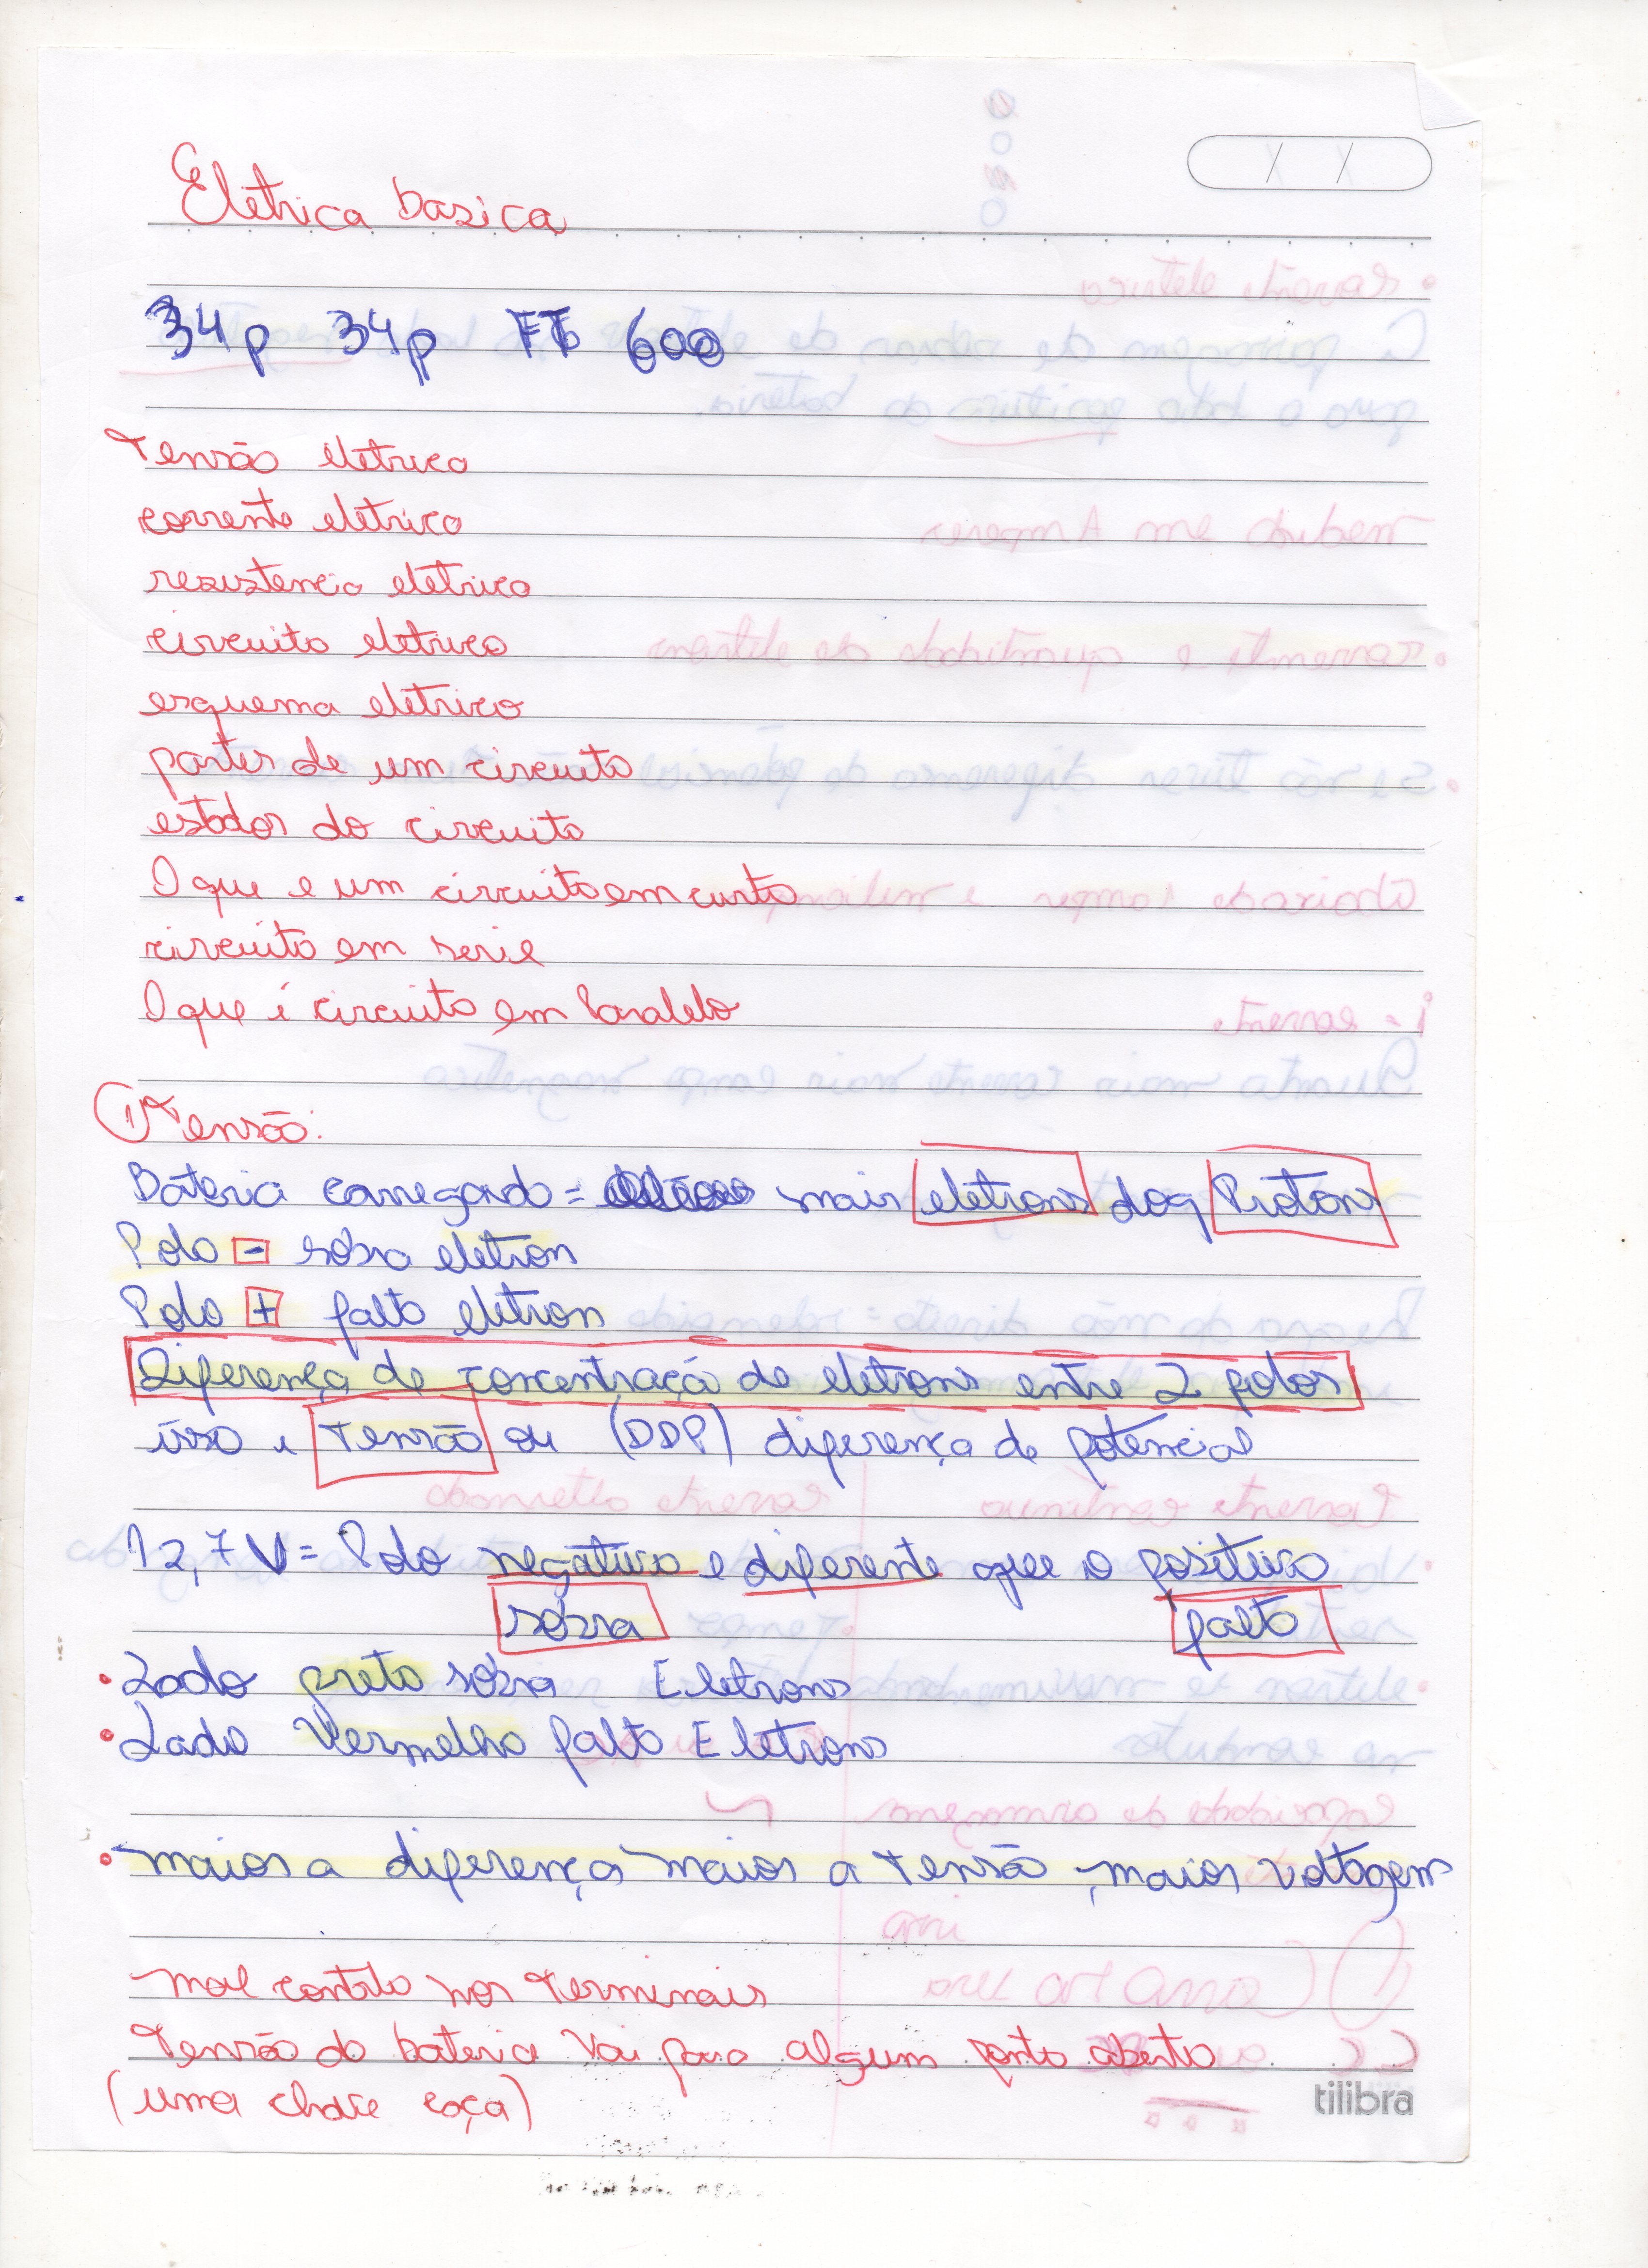 Eletrica basica
34p 34p FT 600
Tensão eletrica
corrente eletrica
resistencia eletrica
circuito eletrico
esquema eletrico
partes de um circuito
estados do circuito
O que e um circuito em curto
circuito em serie
O que é circuito em Paralelo
1 Tensão:
Bateria carregada = mais eletrons doq Protons
Polo - sobra eletron
Polo + falta eletron
Diferença de concentraçã de eletrons entre 2 polos
isso e Tensão ou (DDP) diferença de potencial
12,7 V = Polo negativo e diferente que o positivo
sobra falta
• Lado preto sobra Eletrons
• Lado Vermelho falta Eletrons
• maior a diferença maior a tensão, maior voltagem
mal contato nos terminais
Tensão da bateria vai para algum ponto aberto
(uma chave caça)
tilibra